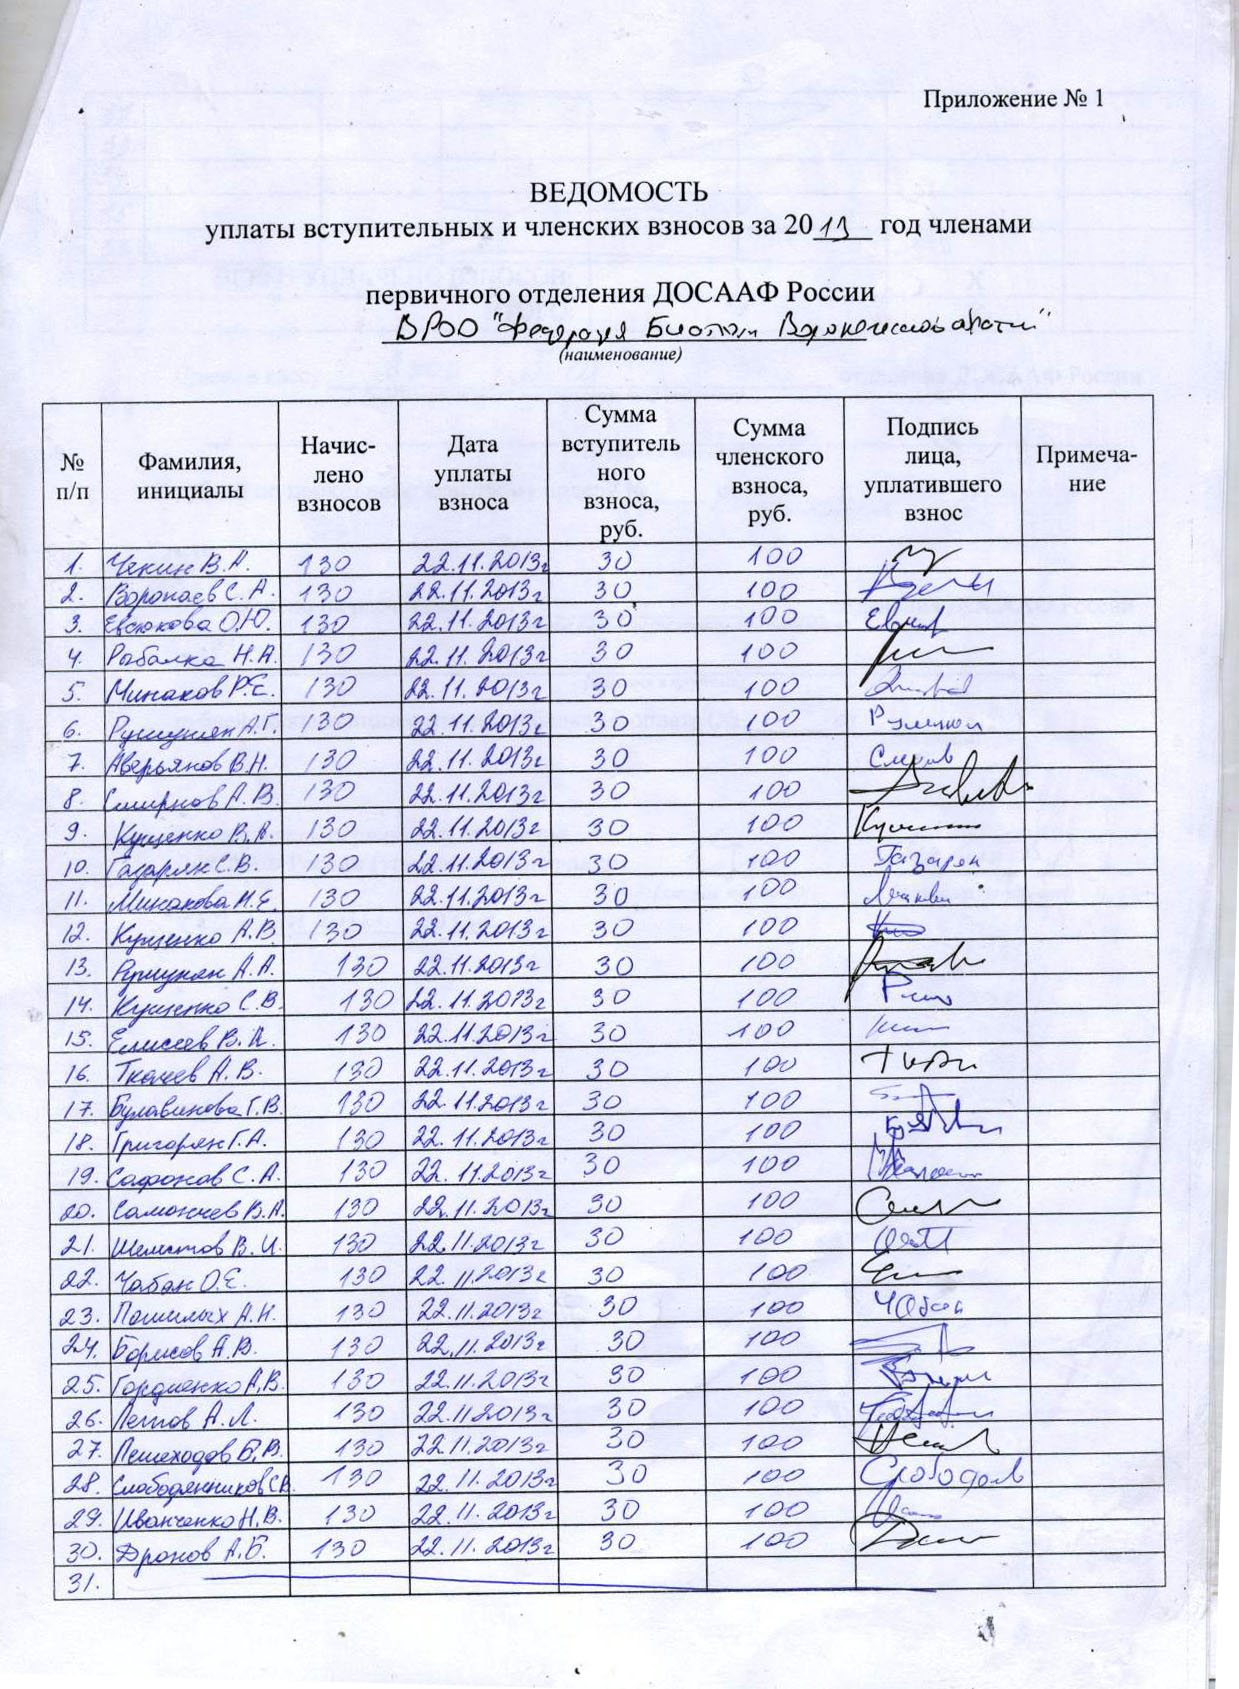 Приложение № 1
ВЕДОМОСТЬ
уплаты вступительных и членских взносов за 2013 год членами
первичного отделения ДОСААФ России
ВРОО "Федерация Воронежской области"
(наименование)
№ п/п Фамилия, инициалы Начис-лено взносов Дата уплаты взноса Сумма вступитель ного взноса, руб. Сумма членского взноса, руб. Подпись лица, уплатившего взнос Примеча-ние
1. Чекин В.А. 130 22.11.2013г 30 100
2. Воропаев С.А. 130 22.11.2013г 30 100
3. Евсюкова О.Ю. 130 22.11.2013г 30 100
4. Рыбалка Н.А. 130 22.11.2013г 30 100
5. Минаков Р.Е. 130 22.11.2013г 30 100
6. А.Г. 130 22.11.2013г 30 100
7. Аверьянов В.Н. 130 22.11.2013г 30 100
8. Смирнов А.В. 130 22.11.2013г 30 100
9. Кущенко В.А. 130 22.11.2013г 30 100
10. Газарян С.В. 130 22.11.2013г 30 100 Газарян
11. Минакова М.Е. 130 22.11.2013г 30 100
12. Кущенко А.В. 130 22.11.2013г 30 100
13. А.А. 130 22.11.2013г 30 100
14. Кущенко С.В. 130 22.11.2013г 30 100
15. Елисеев В.А. 130 22.11.2013г 30 100
16. Ткачев А.В. 130 22.11.2013г 30 100
17. Булавинова Г.В. 130 22.11.2013г 30 100
18. Григорян Г.А. 130 22.11.2013г 30 100
19. Сафонов С.А. 130 22.11.2013г 30 100
20. В.А. 130 22.11.2013г 30 100
21. Шелестов В.И. 130 22.11.2013г 30 100
22. Чабан О.Е. 130 22.11.2013г 30 100
23. А.Н. 130 22.11.2013г 30 100
24. Борисов А.В. 130 22.11.2013г 30 100
25. Гордиенко А.В. 130 22.11.2013г 30 100
26. А.Л. 130 22.11.2013г 30 100
27. Пешеходов Б.В. 130 22.11.2013г 30 100
28. Слободянников С.В. 130 22.11.2013г 30 100
29. Иванченко Н.В. 130 22.11.2013г 30 100
30. Дронов А.Б. 130 22.11.2013г 30 100
31.